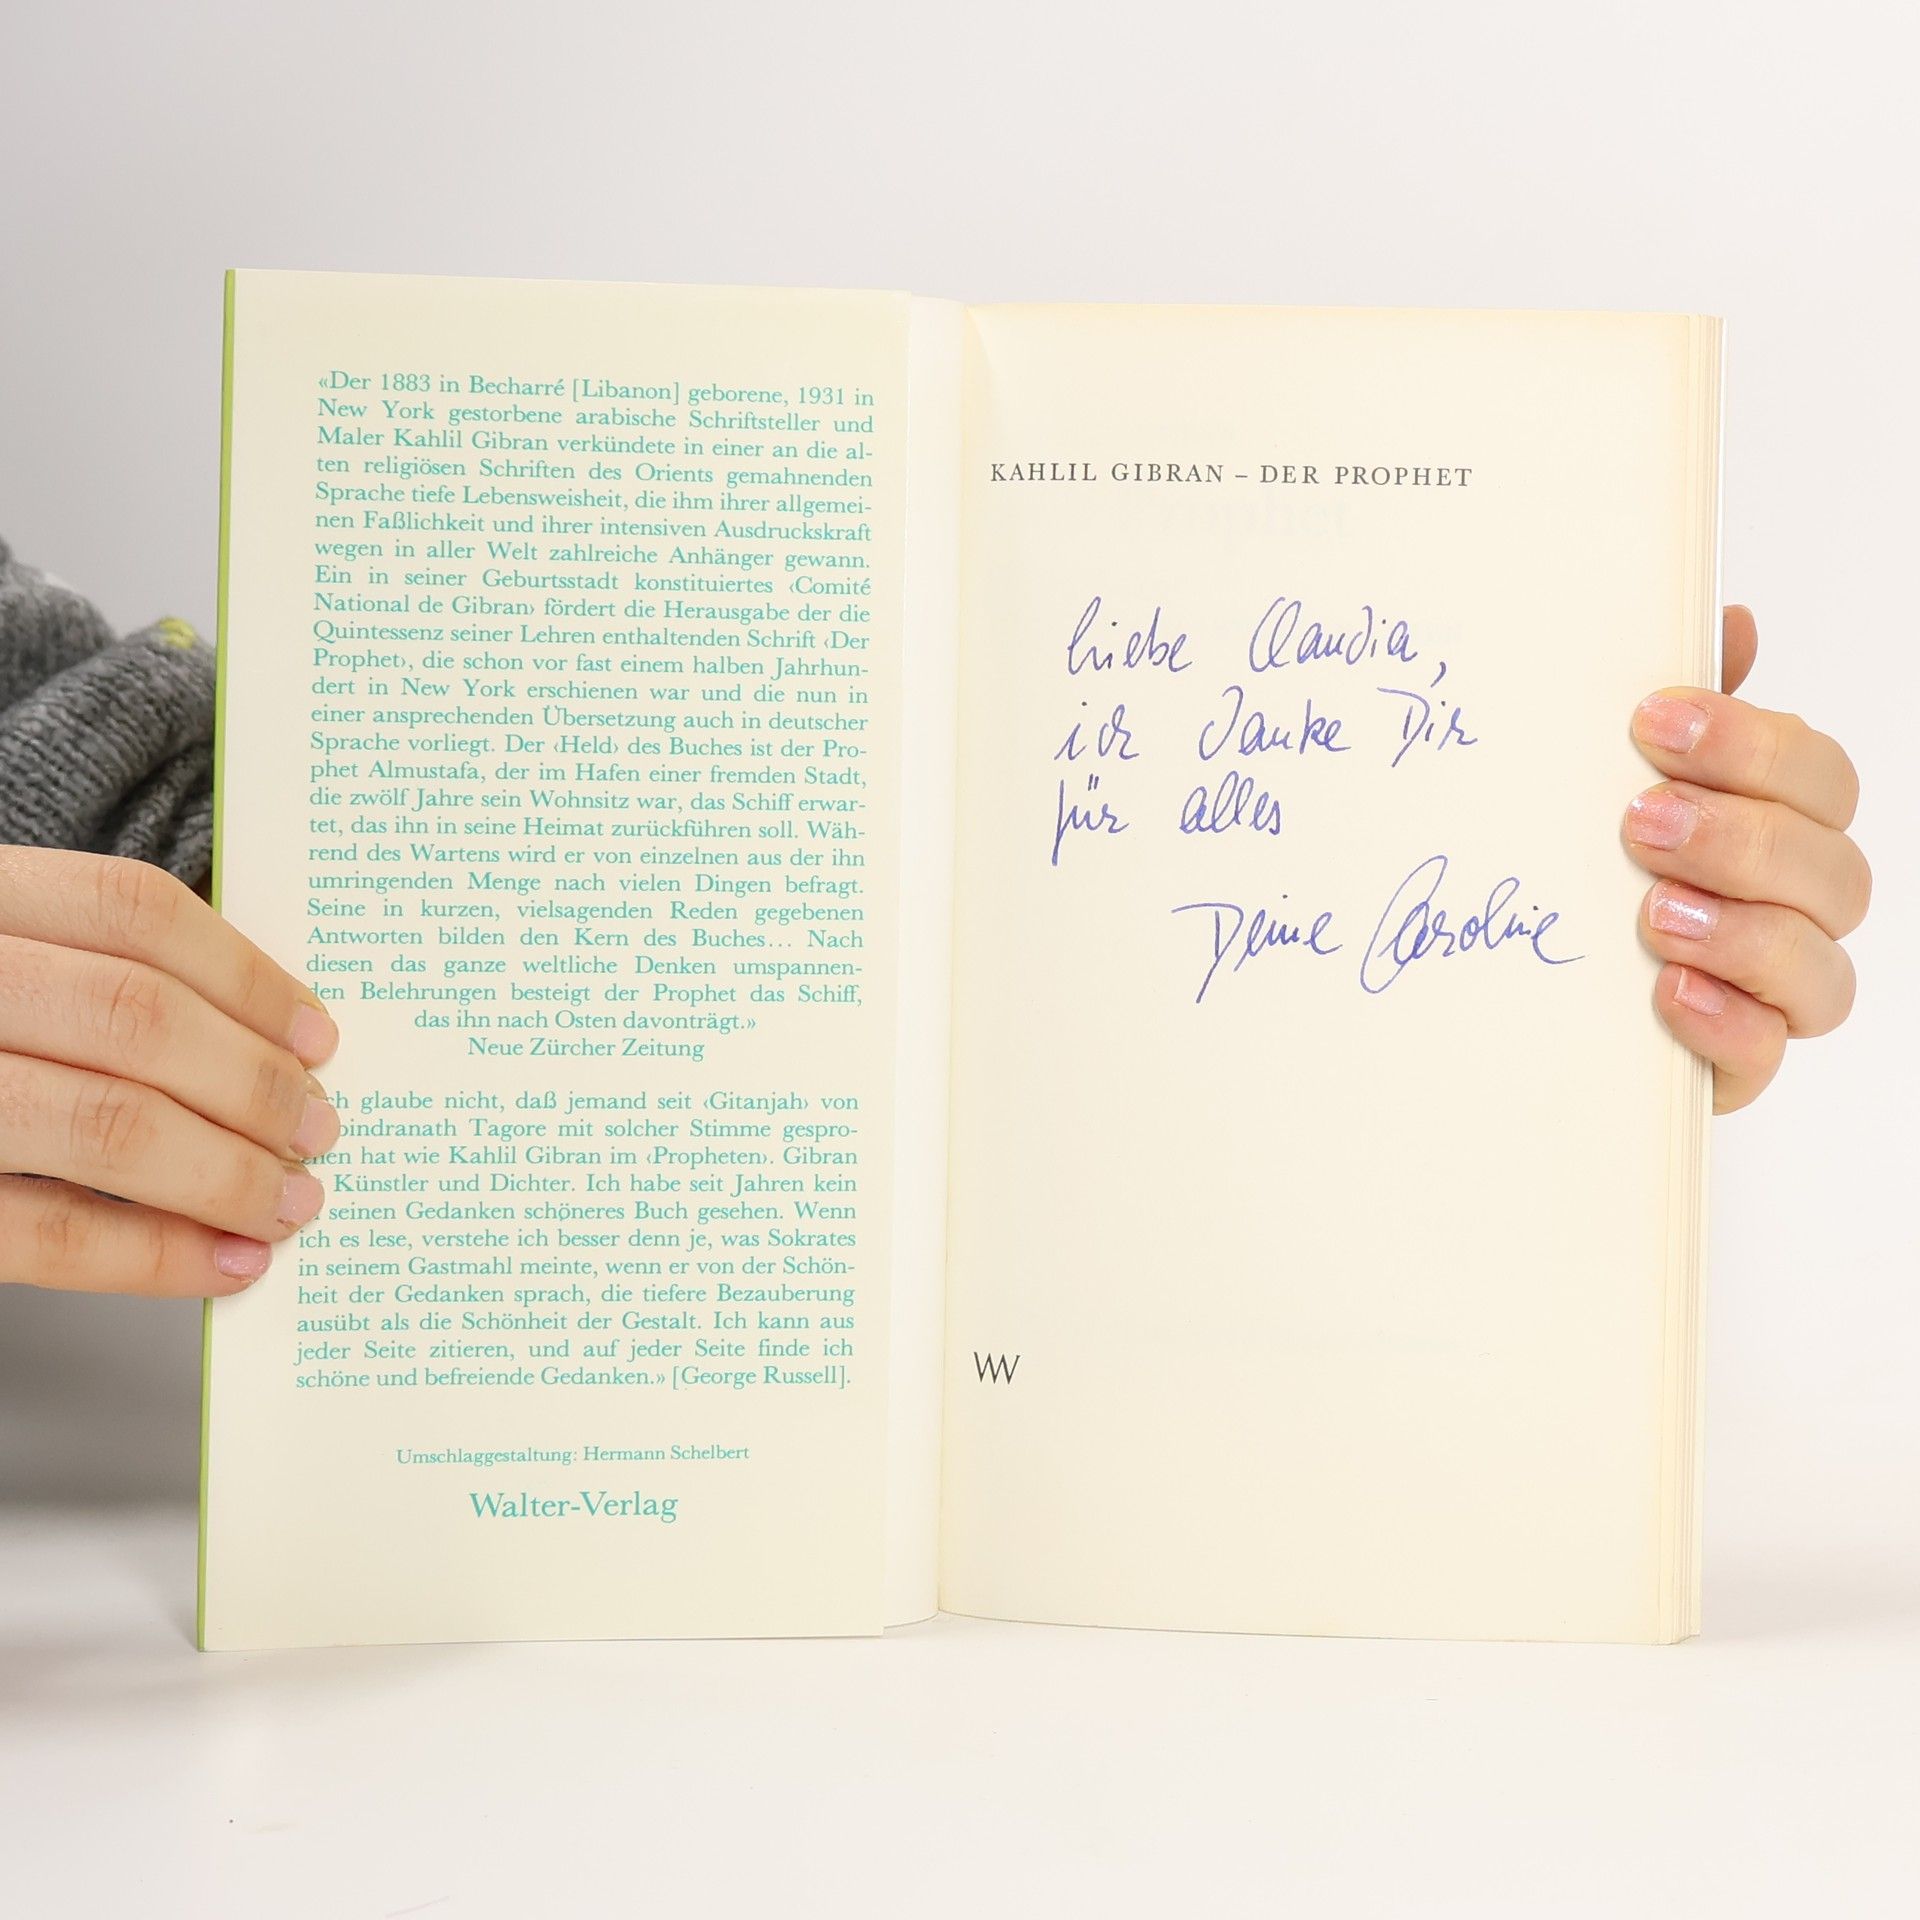 «Der 1883 in Becharré [Libanon] geborene, 1931 in
New York gestorbene arabische Schriftsteller und
Maler Kahlil Gibran verkündete in einer an die al-
ten religiösen Schriften des Orients gemahnenden
Sprache tiefe Lebensweisheit, die ihm ihrer allgemei-
nen Faßlichkeit und ihrer intensiven Ausdruckskraft
wegen in aller Welt zahlreiche Anhänger gewann.
Ein in seiner Geburtsstadt konstituiertes ‹Comité
National de Gibran› fördert die Herausgabe der die
Quintessenz seiner Lehren enthaltenden Schrift ‹Der
Prophet›, die schon vor fast einem halben Jahrhun-
dert in New York erschienen war und die nun in
einer ansprechenden Übersetzung auch in deutscher
Sprache vorliegt. Der ‹Held› des Buches ist der Pro-
phet Almustafa, der im Hafen einer fremden Stadt,
die zwölf Jahre sein Wohnsitz war, das Schiff erwar-
tet, das ihn in seine Heimat zurückführen soll. Wäh-
rend des Wartens wird er von einzelnen aus der ihn
umringenden Menge nach vielen Dingen befragt.
Seine in kurzen, vielsagenden Reden gegebenen
Antworten bilden den Kern des Buches... Nach
diesen das ganze weltliche Denken umspannen-
den Belehrungen besteigt der Prophet das Schiff,
das ihn nach Osten davonträgt.»
Neue Zürcher Zeitung
glaube nicht, daß jemand seit ‹Gitanjah› von
Tagore mit solcher Stimme gespro-
chen hat wie Kahlil Gibran im ‹Propheten›. Gibran
Künstler und Dichter. Ich habe seit Jahren kein
seinen Gedanken schöneres Buch gesehen. Wenn
ich es lese, verstehe ich besser denn je, was Sokrates
in seinem Gastmahl meinte, wenn er von der Schön-
heit der Gedanken sprach, die tiefere Bezauberung
ausübt als die Schönheit der Gestalt. Ich kann aus
jeder Seite zitieren, und auf jeder Seite finde ich
schöne und befreiende Gedanken.» [George Russell].
Umschlaggestaltung: Hermann Schelbert
Walter-Verlag
KAHLIL GIBRAN – DER PROPHET
liebe Claudia,
ich danke Dir
für alles
Deine Caroline
W